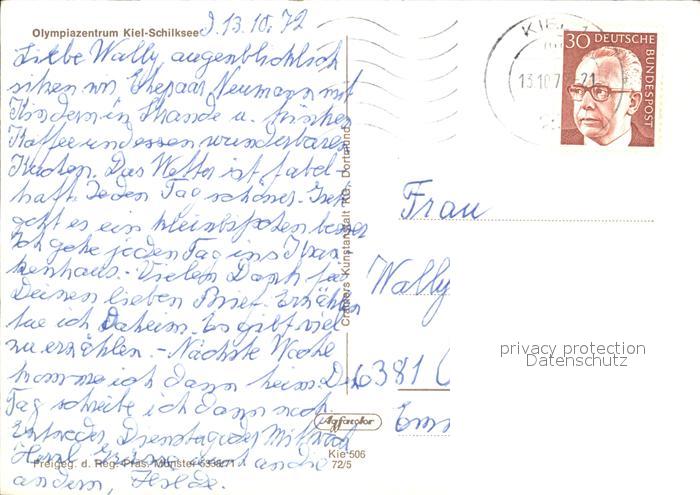 Olympiazentrum Kiel-Schilksee
D. 13.10.72
Liebe Wally, augenblicklich
sitzen wir Ehepaar Neumann mit
Kindern in Strande u. trinken
Kaffee und essen wunderbaren
Kuchen. Das Wetter ist fabel-
haft. Jeden Tag schöner.
geht es ein klein bißchen besser
Ich gehe jeden Tag ins Kran
kenhaus. - Vielen Dank für
Deinen lieben Brief. Erzählen
tue ich Daheim. Es gibt viel
zu erzählen. - Nächste Woche
komme ich dann heim. Den
Tag schreibe ich dann noch
Entweder Dienstag oder Mittwoch
Herzl. Grüße auch an die
andern,
Freigeg. d. Reg. Präs. Münster
Cramers Kunstanstalt KG., Dortmund
Agfacolor
Kie 506
72/5
KIEL 1
13.10.72-21
30 DEUTSCHE BUNDESPOST
Frau
Wally
6381
Ems
privacy protection
Datenschutz